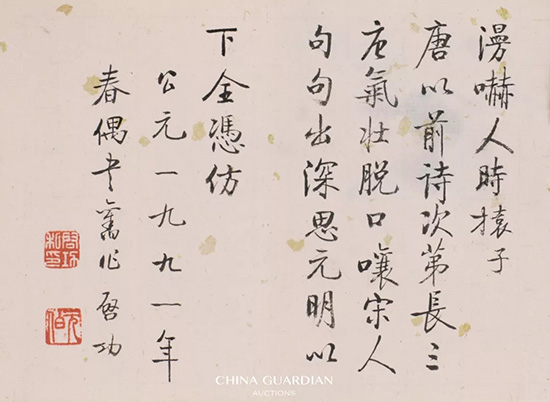 漫嚇人時子
唐以前詩次第長三
唐氣壯脱口嚷宋人
句句出深思元明以
下全憑仿
公元一九九一年
春偶書舊作啓功
啓功私印
元白
CHINA GUARDIAN
AUCTIONS